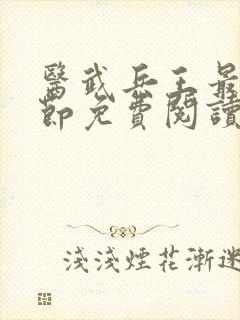 醫武兵王最
節免費閱讀
淺淺煙花漸迷